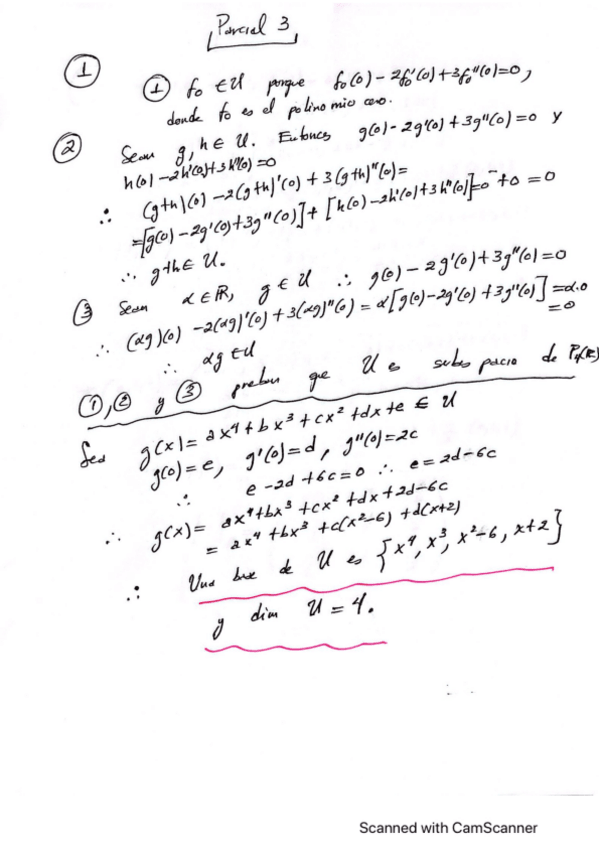 Parcial 3
①
① f₀ ∈ U porque f₀(0) - 2f₀'(0) + 3f₀''(0) = 0,
donde f₀ es el polinomio cero.
② Sean g, h ∈ U. Entonces g(0) - 2g'(0) + 3g''(0) = 0 y
h(0) - 2h'(0) + 3h''(0) = 0
∴ (g+h)(0) - 2(g+h)'(0) + 3(g+h)''(0) =
= [g(0) - 2g'(0) + 3g''(0)] + [h(0) - 2h'(0) + 3h''(0)] = 0 + 0 = 0
∴ g+h ∈ U.
③ Sean α ∈ ℝ, g ∈ U ∴ g(0) - 2g'(0) + 3g''(0) = 0
∴ (αg)(0) - 2(αg)'(0) + 3(αg)''(0) = α[g(0) - 2g'(0) + 3g''(0)] = α.0
= 0
∴ αg ∈ U
①, ② y ③ prueban que U es subespacio de P₄(ℝ)
Sea g(x) = ax⁴ + bx³ + cx² + dx + e ∈ U
g(0) = e, g'(0) = d, g''(0) = 2c
∴ e - 2d + 6c = 0 ∴ e = 2d - 6c
∴ g(x) = ax⁴ + bx³ + cx² + dx + 2d - 6c
= ax⁴ + bx³ + c(x² - 6) + d(x+2)
∴ Una base de U es {x⁴, x³, x² - 6, x + 2}
y dim U = 4.
Scanned with CamScanner